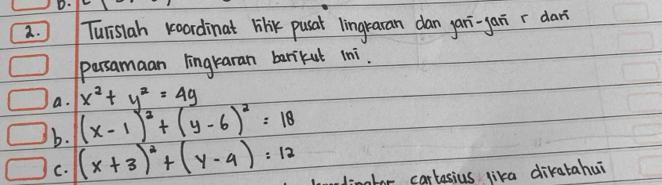 2. Tulislah koordinat titik pusat lingkaran dan jari-jari r dari
persamaan lingkaran barikut ini.
a. x² + y² = 49
b. (x - 1)² + (y - 6)² = 18
c. (x + 3)² + (y - 4) = 12
cartasius jika dikatahui